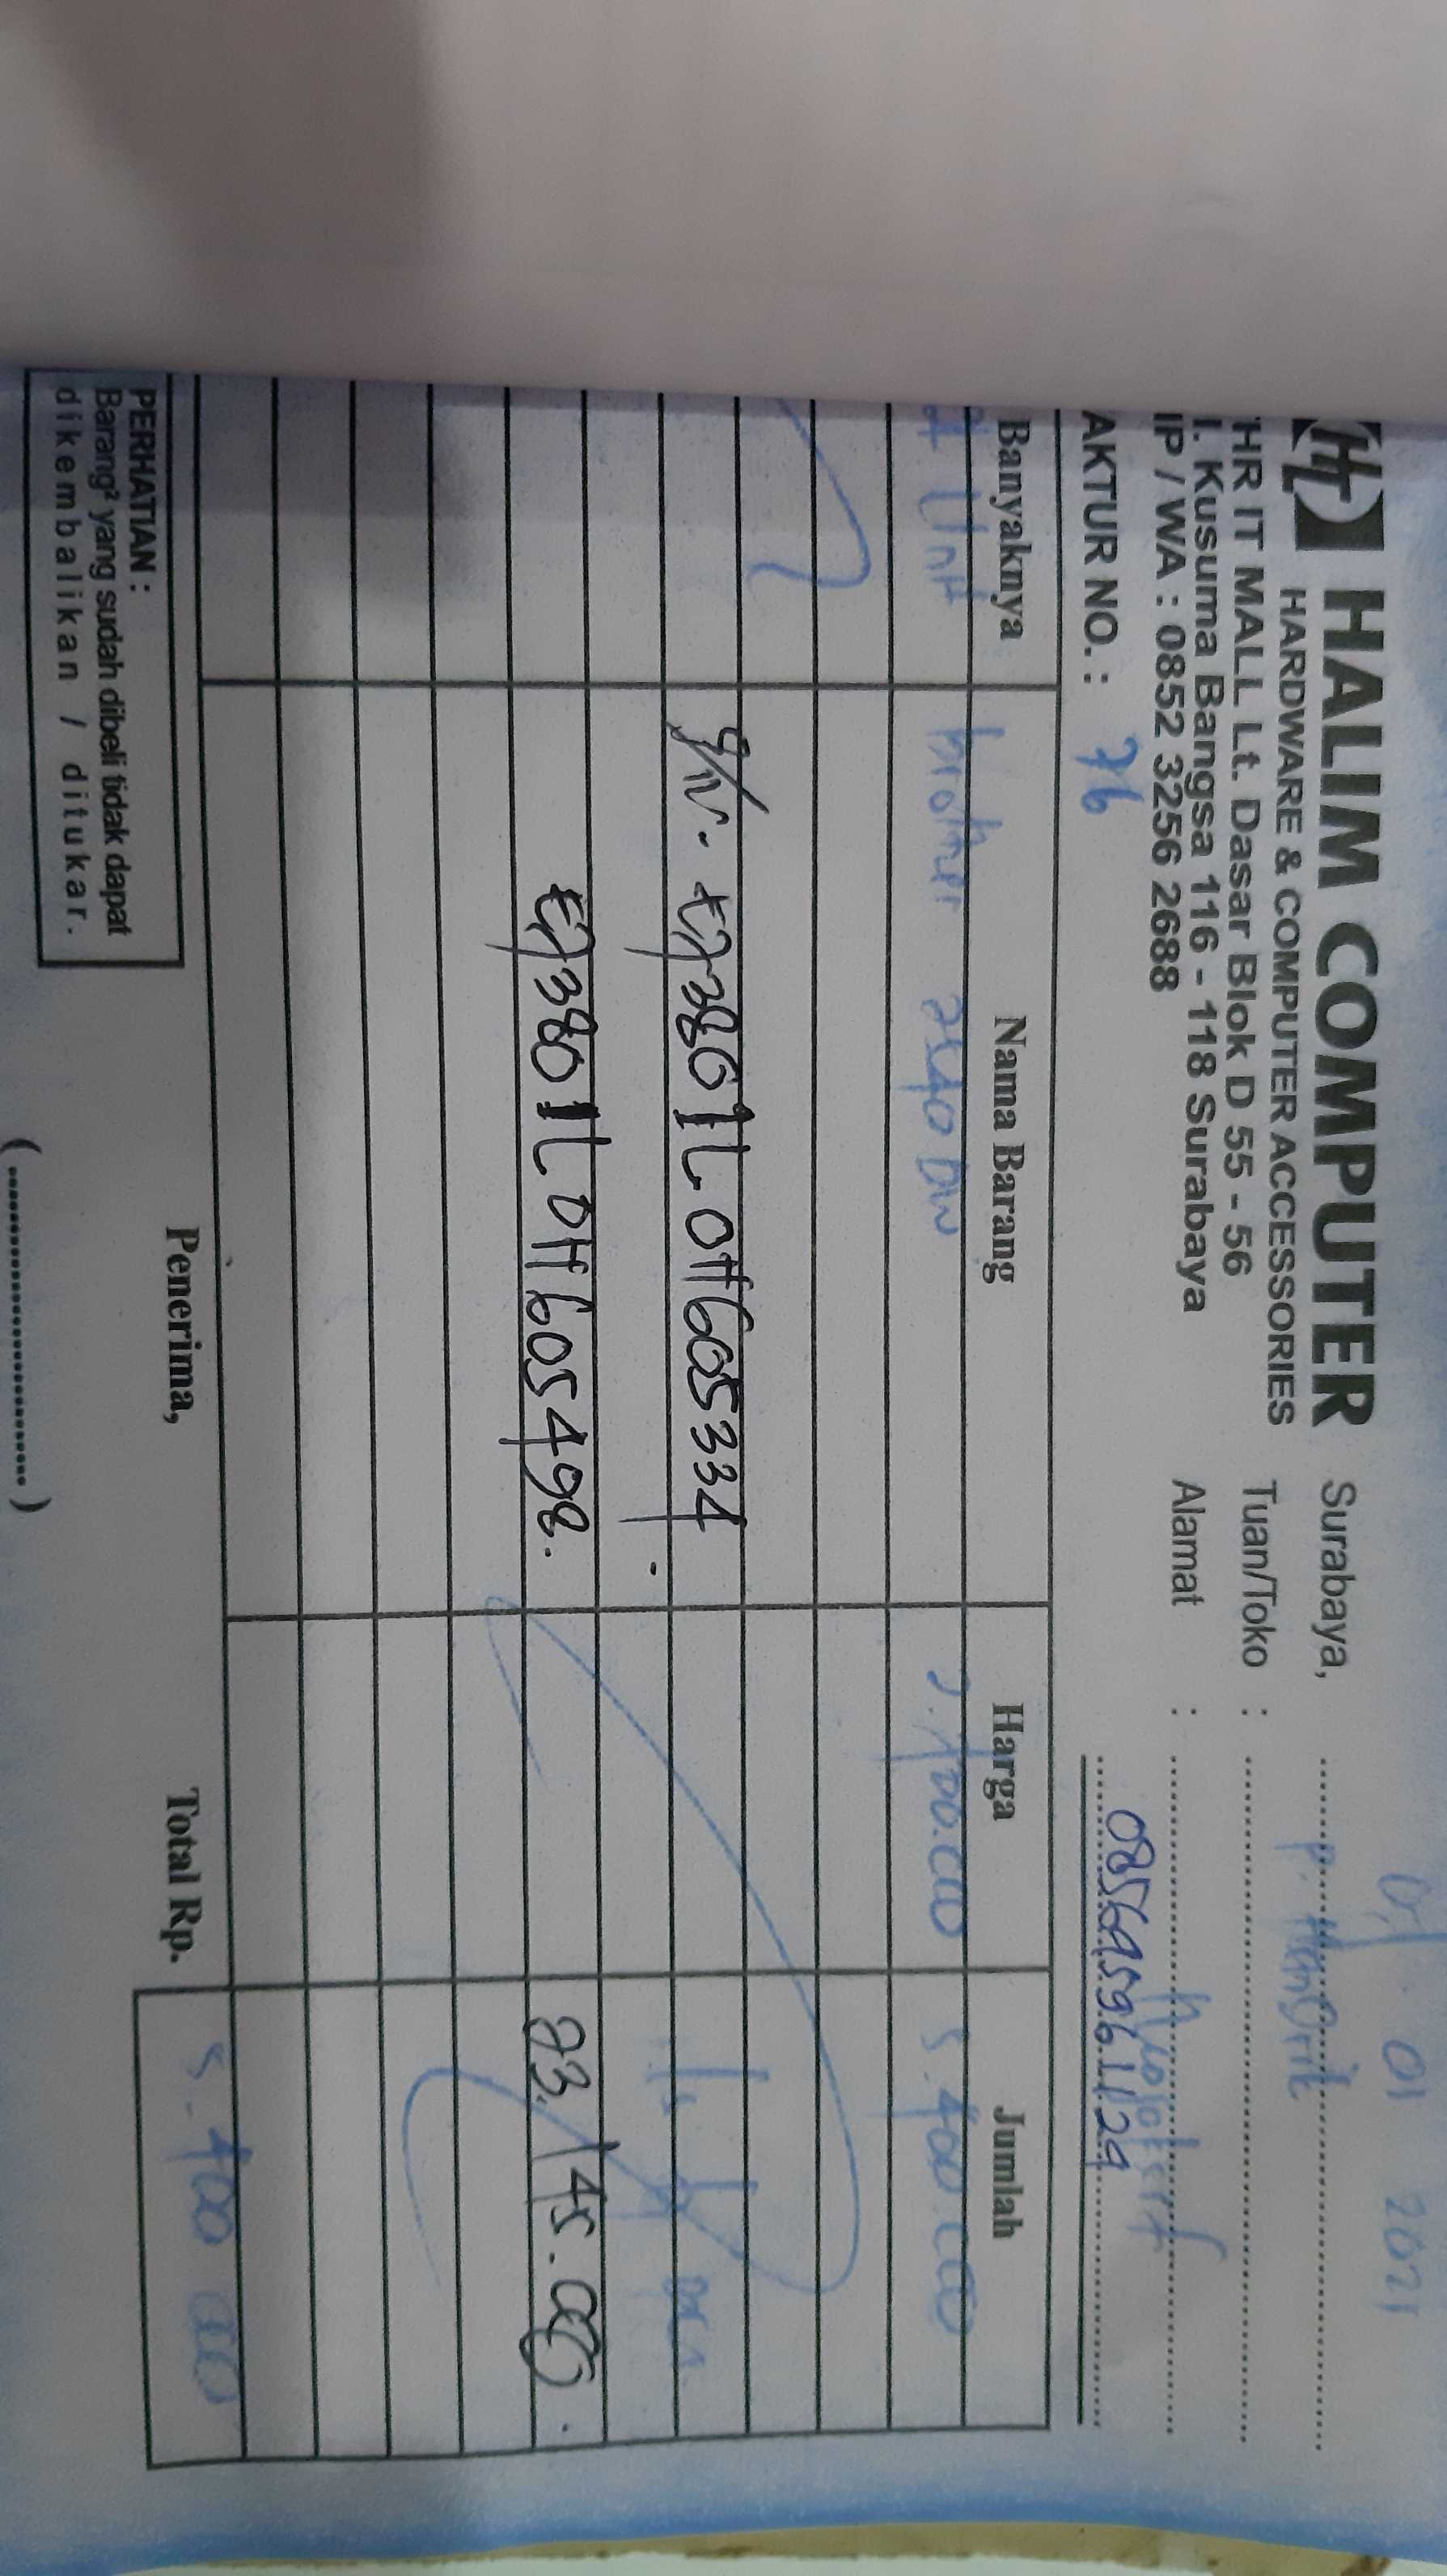 HALIM COMPUTER
HARDWARE & COMPUTER ACCESSORIES
HR IT MALL Lt. Dasar Blok D 55 - 56
l. Kusuma Bangsa 116 - 118 Surabaya
IP / WA : 0852 3256 2688
Surabaya, 01 2021
Tuan/Toko :
Alamat :
085695961129
AKTUR NO. : 76
Banyaknya Nama Barang Harga Jumlah
Unit brother DW 5.400.000
605334
E7380 1L0H605498. 93.145.000.
PERHATIAN :
Barang² yang sudah dibeli tidak dapat
dikembalikan / ditukar.
Penerima,
Total Rp. 5.400 000
(........................)